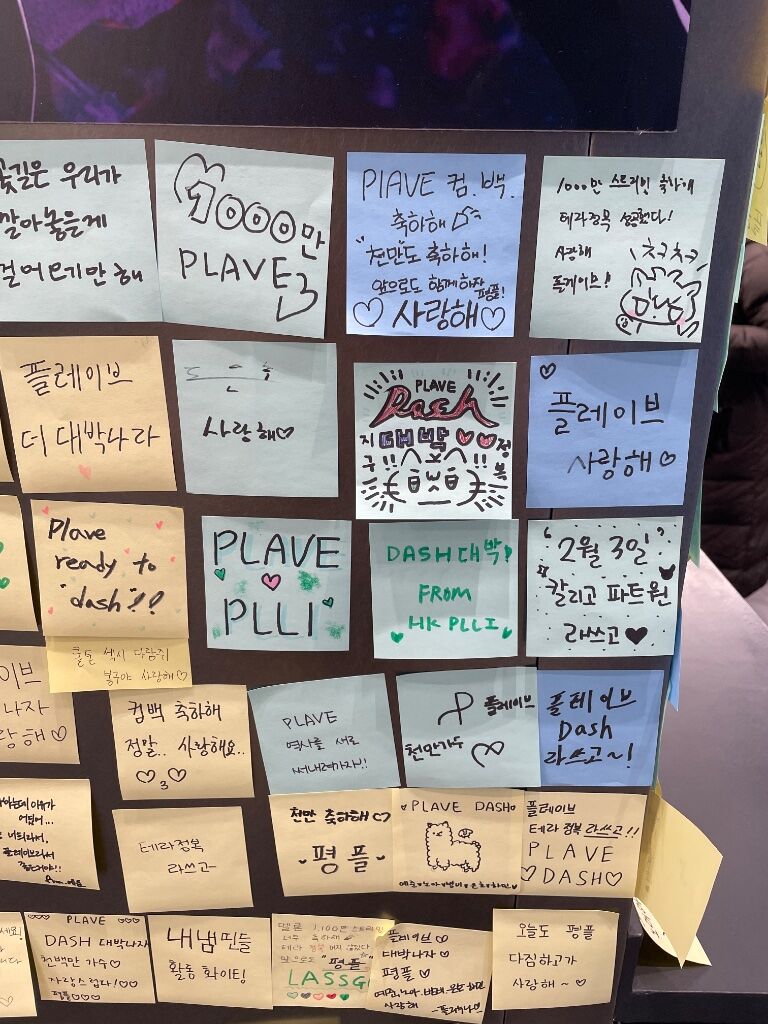 꽃길은 우리가
깔아놓을게
걸어오기만 해
1000만
PLAVE
PLAVE 컴.백.
축하해
"천만"도 축하해!
앞으로도 함께하자
평플!
♡사랑해♡
1000만 스트리밍 축하해
테라정복 성공했다!
사랑해
플레이브!
플레이브
더 대박나라
사랑해♡
PLAVE
Dash
지 대박 ♡♡ 정
구!! !!복
♡
플레이브
사랑해♡
Plave
ready to
"dash"!!
PLAVE
PLLI
DASH대박!
FROM
HK PLLI
'2월 3일'
칼리고 파트원
라쓰고♥
사랑해♡
컴백 축하해
정말.. 사랑해요..
PLAVE
역사를 새로
써내려가자!!
플레이브
천만가수
플레이브
Dash
라쓰고~!
테라정복
라쓰고-
천만 축하해♡
평플
PLAVE DASH
플레이브
테라 정복 라쓰고!!
PLAVE
♡DASH♡
♡♡♡ PLAVE ♡♡♡
DASH 대박나자
천백만 가수♡
자랑스럽다!♡♡
평플♡♡♡
내냄띤들
활동 화이팅!
"평플"
LASSGO
플레이브♡
대박나자♡
평플♡
사랑해
오늘도 평플
다짐하고가
사랑해~♡